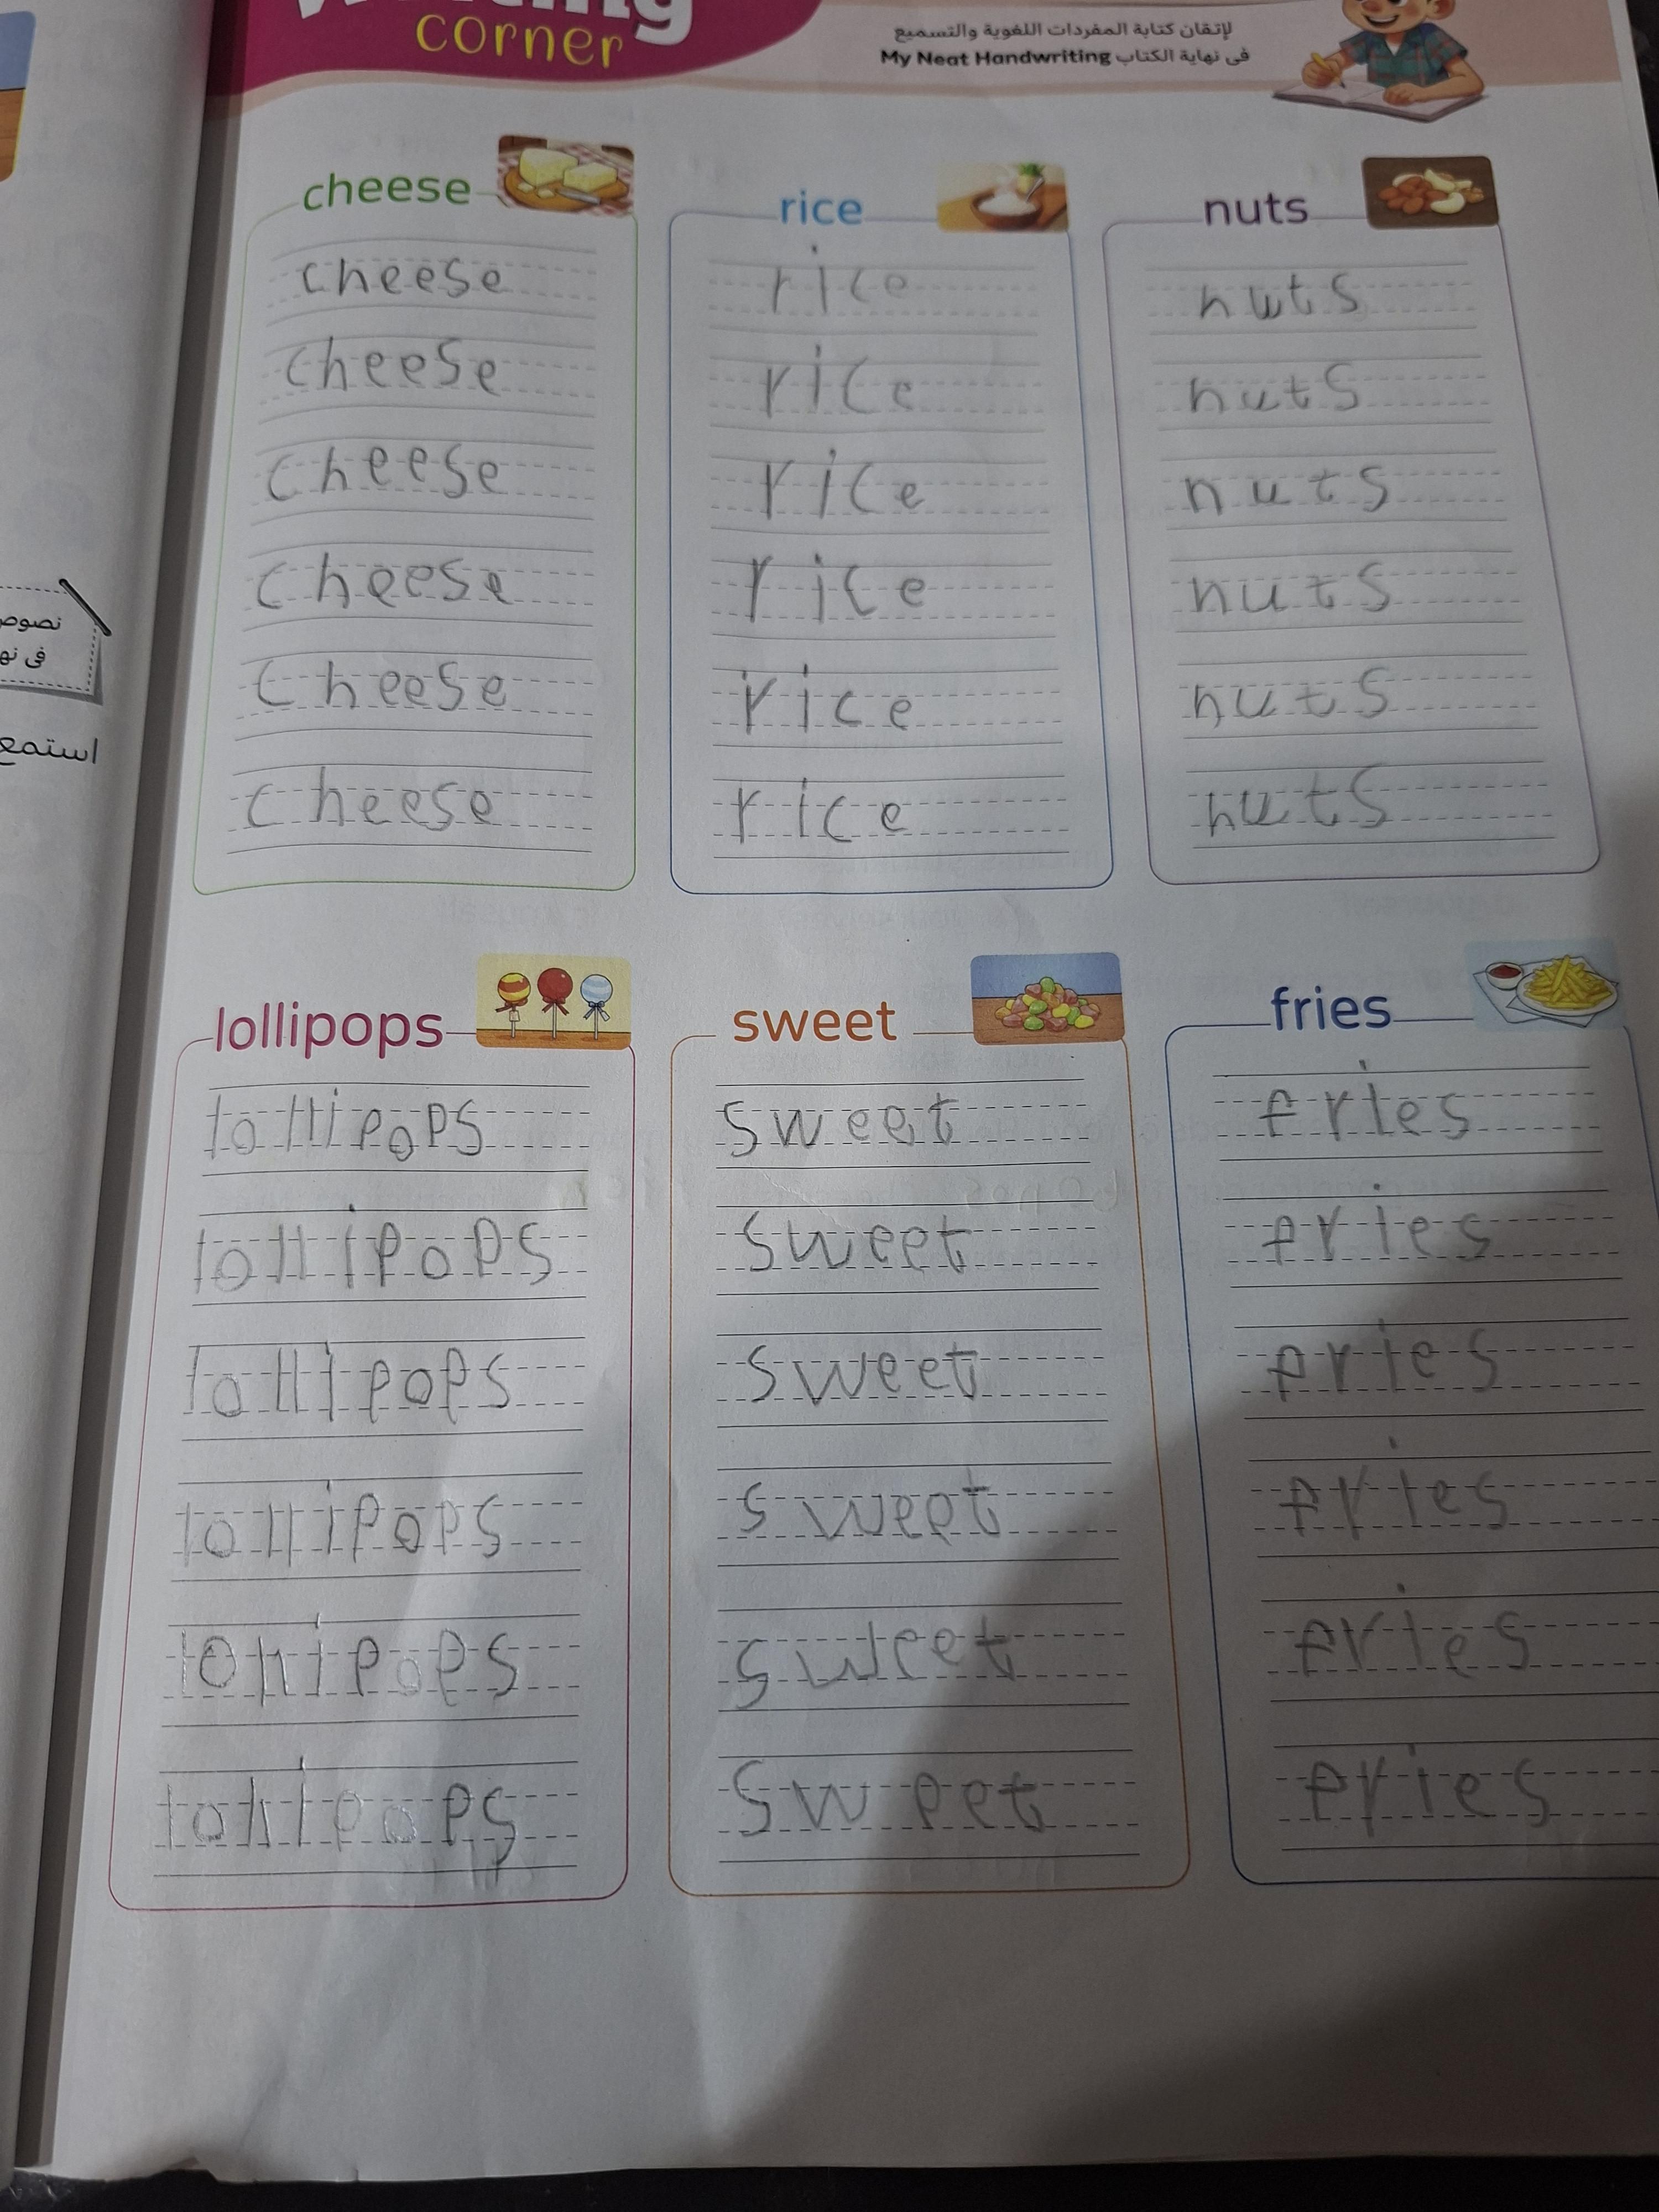 corner
لإتقان كتابة المفردات اللغوية والتسميع
فى نهاية الكتاب My Neat Handwriting
cheese
cheese
cheese
cheese
cheese
cheese
cheese
rice
rice
rice
rice
rice
rice
rice
nuts
nuts
nuts
nuts
nuts
nuts
nuts
فى
استمع
lollipops
lollipops
lollipops
lollipops
lollipops
lollipops
lollipops
sweet
sweet
sweet
sweet
sweet
sweet
sweet
fries
fries
fries
fries
fries
fries
fries